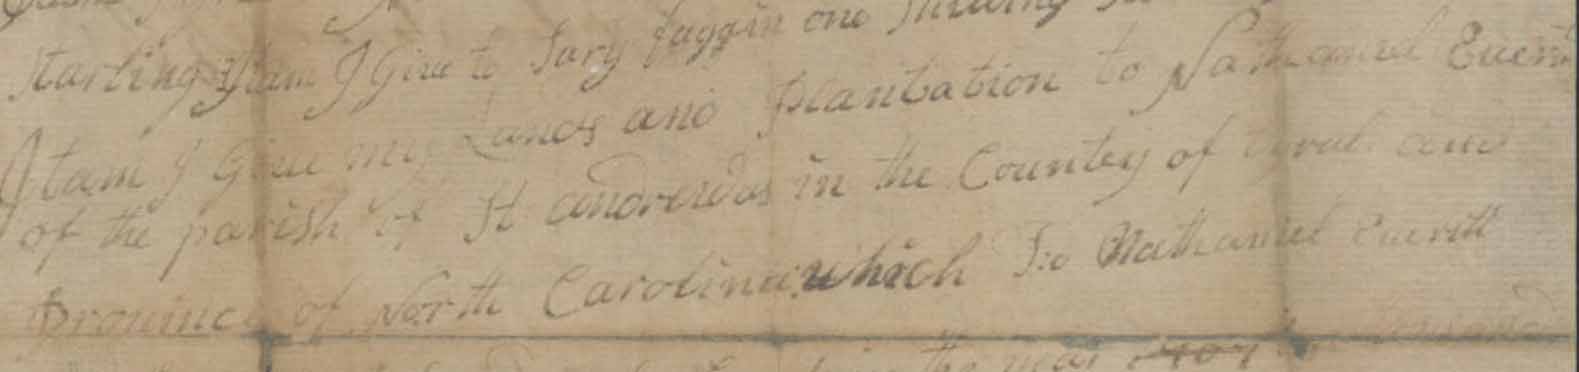 Starling Itam I Give to Sary faggin one Shilling
Itam I Give my Lands and plantation to Nathaniel Everit
of the parish of St andrewas in the County of tyral and
province of North Carolina which Nathaniel everitt
in the year